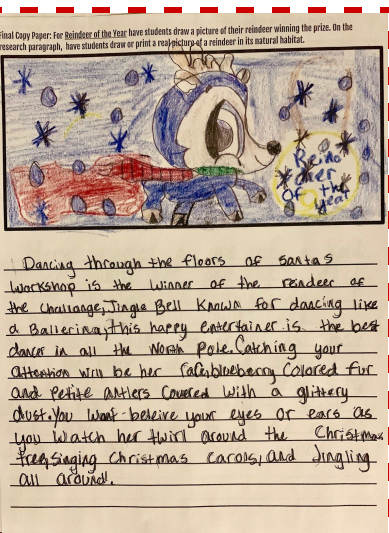 Final Copy Paper: For Reindeer of the Year have students draw a picture of their reindeer winning the prize. On the
research paragraph, have students draw or print a real picture of a reindeer in its natural habitat.
Rein
deer
of the
year
Dancing through the floors of santas
workshop is the winner of the reindeer of
the challange, Jingle Bell Known for dancing like
a Ballerina, this happy entertainer is the best
dancer in all the North Pole. Catching your
attention will be her rare, blueberry colored fur
and petite antlers covered with a glittery
dust. You want beleive your eyes or ears as
you watch her twirl around the Christmas
tree, singing Christmas carols, and Jingling
all around!.